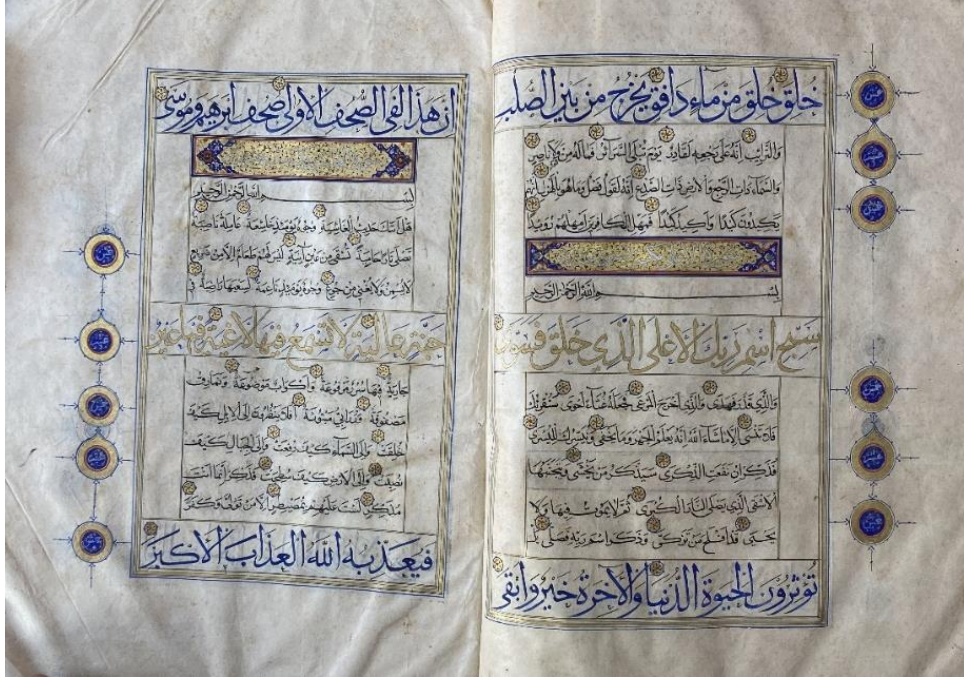 خلق خلق من ماء دافق يخرج من بين الصلب
والترائب انه على رجعه لقادر يوم تبلى السرائر فما له من قوة ولا ناصر
والسماء ذات الرجع والارض ذات الصدع انه لقول فصل وما هو بالهزل انهم
يكيدون كيدا واكيد كيدا فمهل الكافرين امهلهم رويدا
بسم الله الرحمن الرحيم
سبح اسم ربك الاعلى الذي خلق فسوى
والذي قدر فهدى والذي اخرج المرعى فجعله غثاء احوى سنقرئك
فلا تنسى الا ما شاء الله انه يعلم الجهر وما يخفى ونيسرك لليسرى
فذكر ان نفعت الذكرى سيذكر من يخشى ويتجنبها
الاشقى الذي يصلى النار الكبرى ثم لا يموت فيها ولا
يحيى قد افلح من تزكى وذكر اسم ربه فصلى بل
تؤثرون الحيوة الدنيا والآخرة خير وابقى
ان هذا لفي الصحف الاولى صحف ابرهيم وموسى
بسم الله الرحمن الرحيم
هل اتيك حديث الغاشية وجوه يومئذ خاشعة عاملة ناصبة
تصلى نارا حامية تسقى من عين آنية ليس لهم طعام الا من ضريع
لا يسمن ولا يغني من جوع وجوه يومئذ ناعمة لسعيها راضية في
جنة عالية لا تسمع فيها لاغية فيها عين
جارية فيها سرر مرفوعة واكواب موضوعة ونمارق
مصفوفة وزرابي مبثوثة افلا ينظرون الى الابل كيف
خلقت والى السماء كيف رفعت والى الجبال كيف
نصبت والى الارض كيف سطحت فذكر انما انت
مذكر لست عليهم بمصيطر الا من تولى وكفر
فيعذبه الله العذاب الاكبر